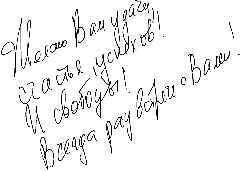 Желаю Вам удачи,
счастья, успехов!
И свободы!
Всегда рад встрече с Вами!